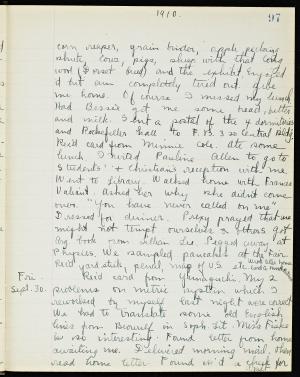 1910.
97
corn reaper, grain binder, apple, packing
chute, cows, pigs, sheep with that long
wool (Dorset breed) and the exhibit. Enjoyed
it but am completely tired out. give
me home. Of course I missed my lunch
Had Bessie get me some bread, butter
and milk. Sent a postal of the 4 dormitories
and Rockefeller Hall to F. B. 320 Central Bldg.
Rec'd card from Minnie Cole. Ate some
lunch. Invited Pauline Allen to go to
Students' + Christian's reception with me.
Went to Library. Walked home with Frances
Valiant. Asked her why she didn't come
over. "You have never called on me"
Dressed for dinner. Prexy prayed that we
might not tempt ourselves & others. Got
Arg. book from Lillian Lee. Pegged away at
Physics. We sampled pancakes at the Fair.
Rec'd yard stick, pencil, map of U.S. etc.
Fri. Rec'd card from
Sept. 30. problems on metric system which I
reworked by myself last night were correct
We had to translate some old English
lines from Beowulf in Soph. Lit. Miss Fiske
is so interesting. Found letter from home
awaiting me. Delivered morning mail, then
read home letter. Found in it a check for